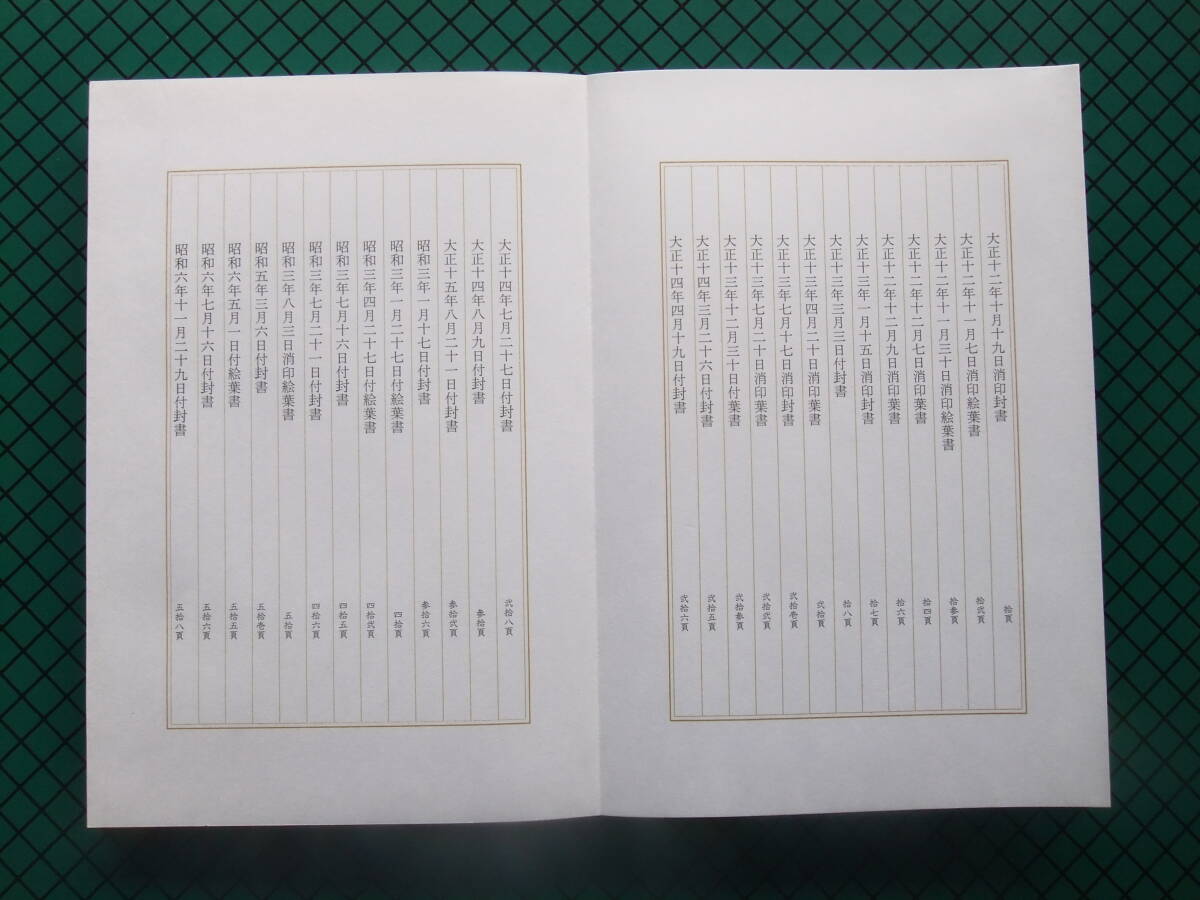 大正十二年十月十九日消印封書 拾頁
大正十二年十一月七日消印絵葉書 拾弐頁
大正十二年十一月三十日消印絵葉書 拾参頁
大正十二年十二月七日消印葉書 拾四頁
大正十二年十二月九日消印葉書 拾六頁
大正十三年一月十五日消印封書 拾七頁
大正十三年三月三日付封書 拾八頁
大正十三年四月二十日消印葉書 弐拾頁
大正十三年七月十七日消印封書 弐拾壱頁
大正十三年七月二十日消印葉書 弐拾弐頁
大正十三年十二月三十日付葉書 弐拾参頁
大正十四年三月二十六日付封書 弐拾五頁
大正十四年四月十九日付封書 弐拾六頁
大正十四年七月二十七日付封書 弐拾八頁
大正十四年八月九日付封書 参拾頁
大正十五年八月二十一日付封書 参拾弐頁
昭和三年一月十七日付封書 参拾六頁
昭和三年一月二十七日付絵葉書 四拾頁
昭和三年四月二十七日付絵葉書 四拾弐頁
昭和三年七月十六日付封書 四拾五頁
昭和三年七月二十一日付封書 四拾六頁
昭和三年八月三日消印絵葉書 五拾頁
昭和五年三月六日付封書 五拾壱頁
昭和六年五月一日付絵葉書 五拾五頁
昭和六年七月十六日付封書 五拾六頁
昭和六年十一月二十九日付封書 五拾八頁